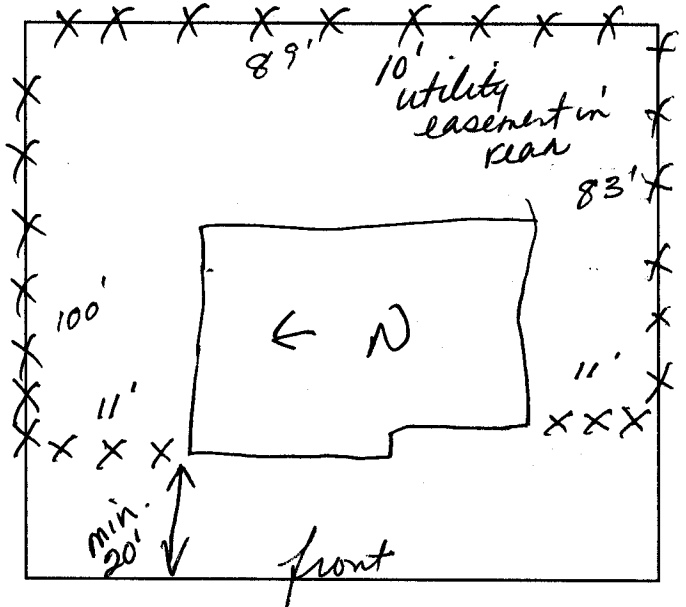 89'
10'
utility
easement in
rear
83'
100'
← N
11'
11'
min.
20'
front